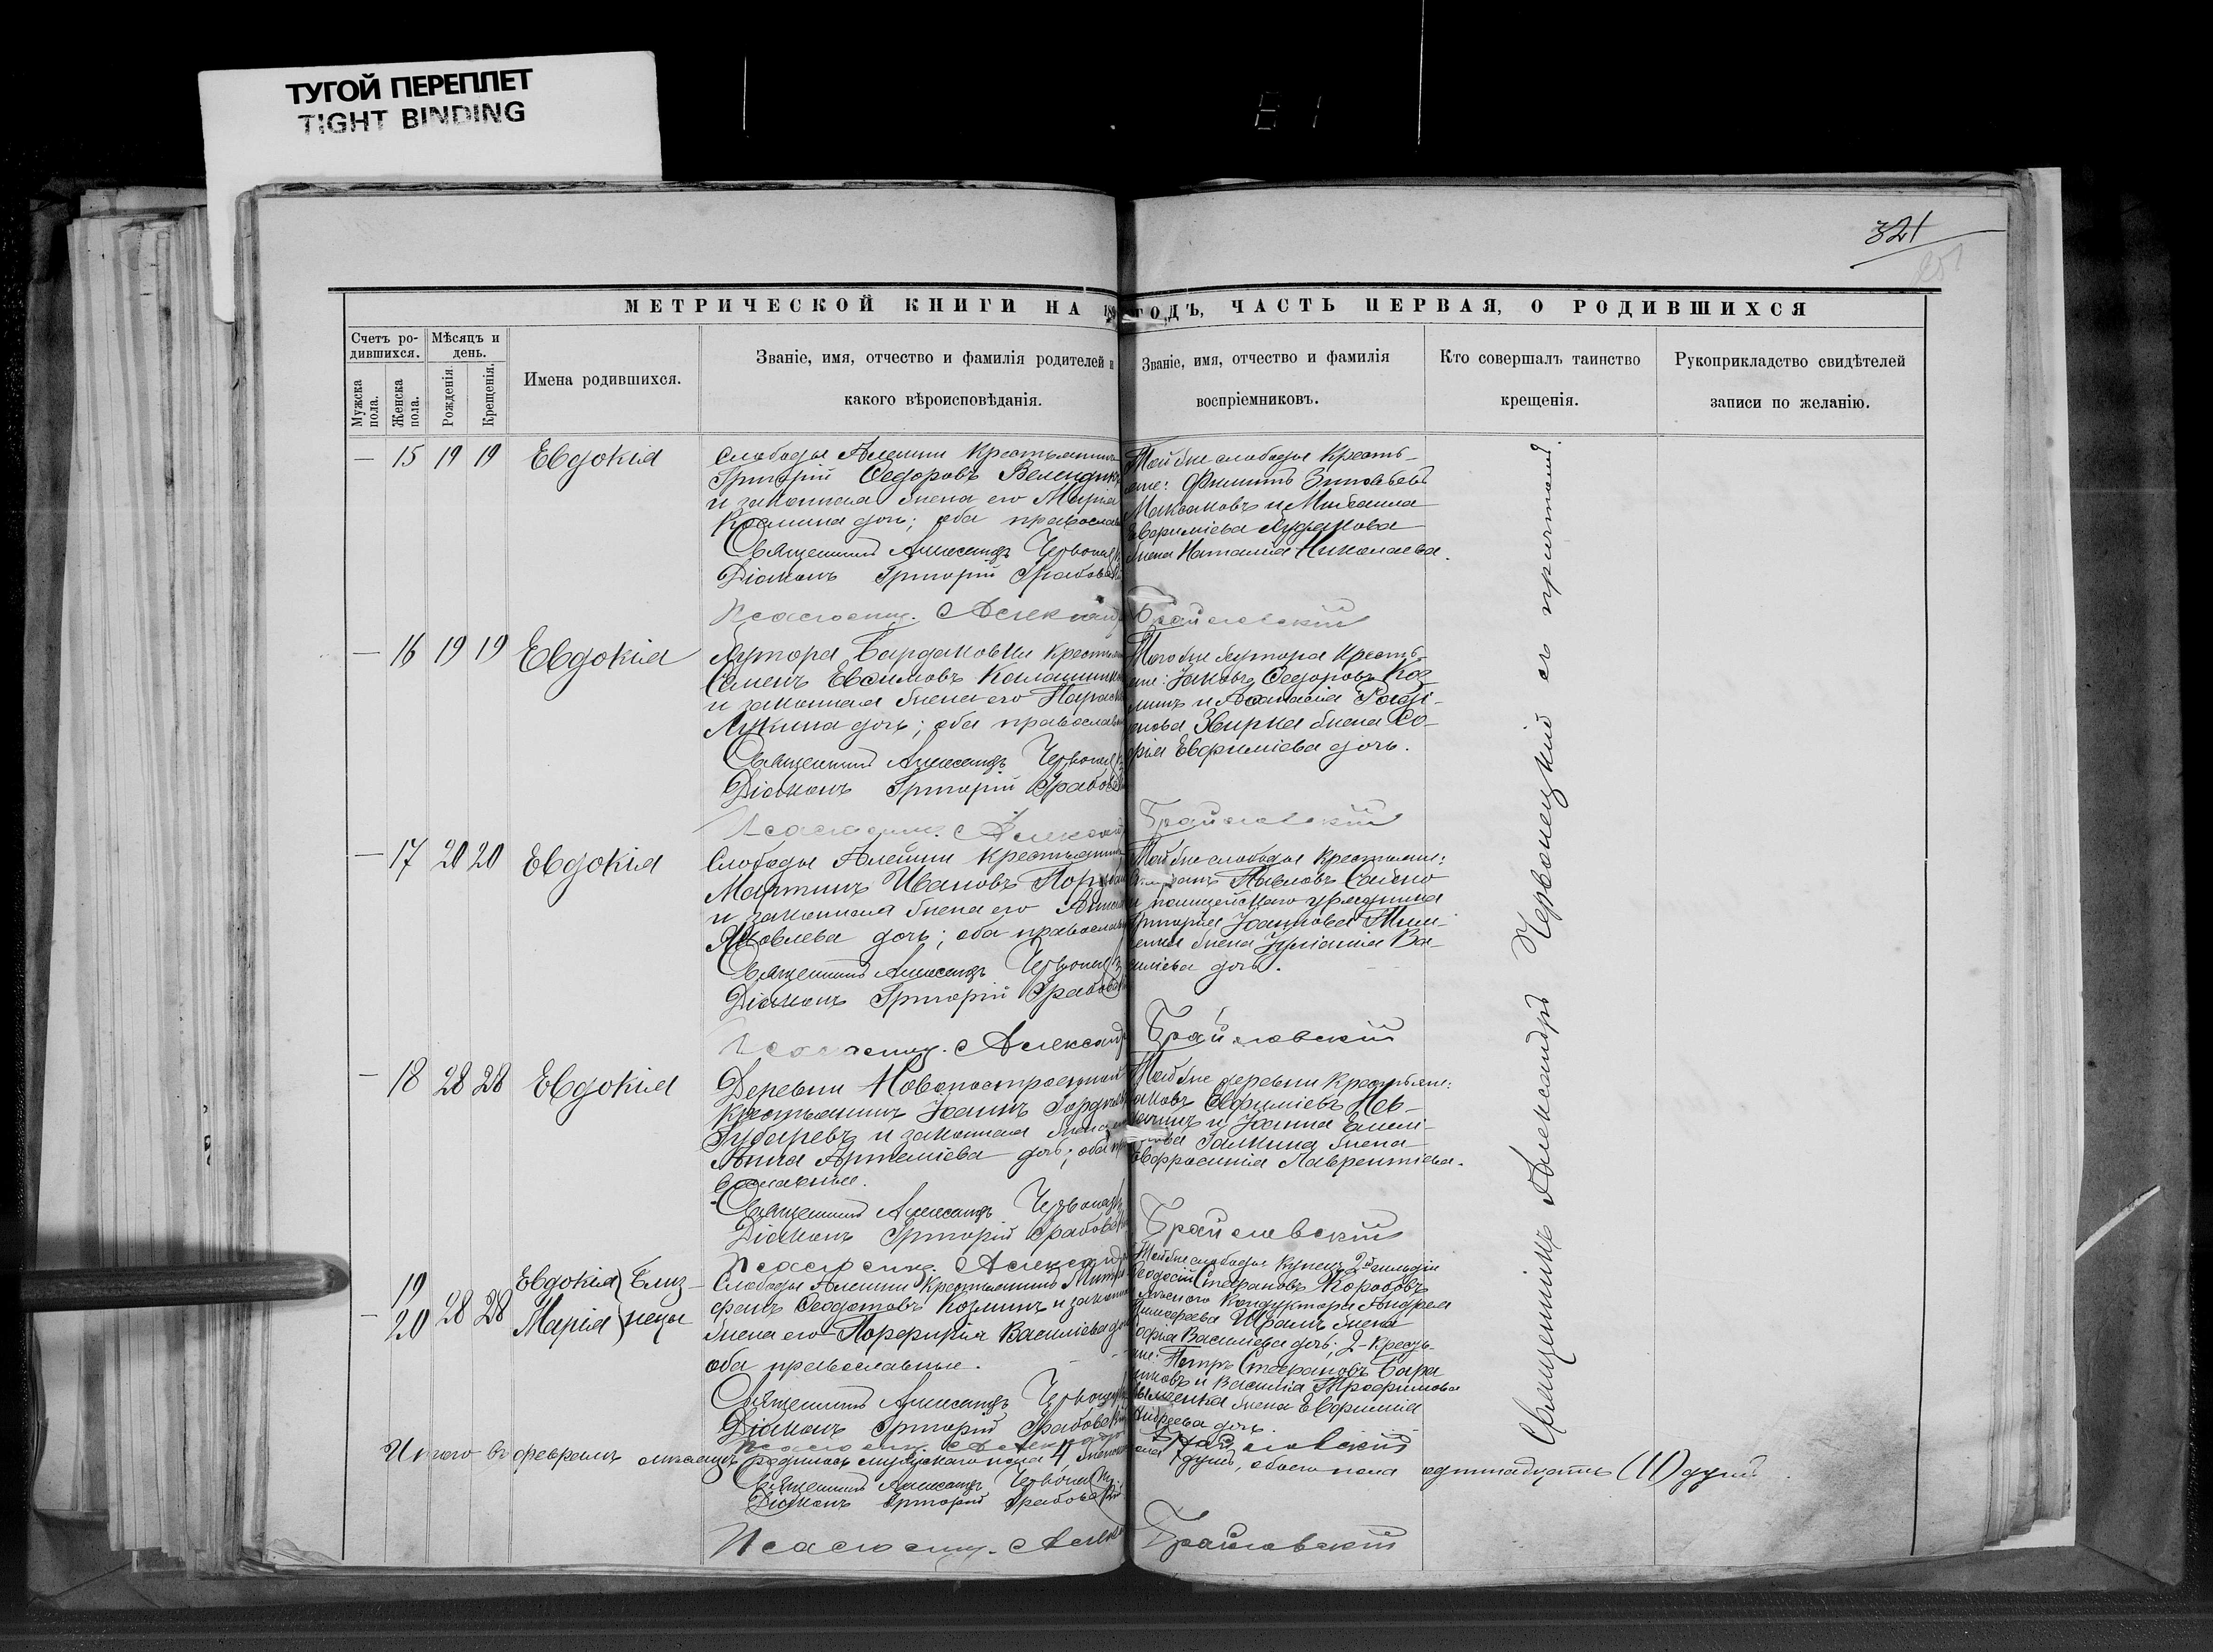 ТУГОЙ ПЕРЕПЛЕТ
TIGHT BINDING
321
МЕТРИЧЕСКОЙ КНИГИ НА ГОДЪ, ЧАСТЬ ПЕРВАЯ, О РОДИВШИХСЯ
Счетъ ро-
дившихся.
Мужска пола.
Женска пола.
Мѣсяцъ и
день.
Рожденія.
Крещенія.
Имена родившихся.
Званіе, имя, отчество и фамилія родителей и
какого вѣроисповѣданія.
Званіе, имя, отчество и фамилія
воспріемниковъ.
Кто совершалъ таинство
крещенія.
Рукоприкладство свидѣтелей
записи по желанію.
— 15 19 19 Евдокія
Слободы Алешки крестьянинъ
Григорій Ѳедоровъ
и законная жена его Марѳа
Козмина дочь; оба православ
Священникъ Александръ Червонецк
Діаконъ Григорій Грабовск
Псаломщ. Александ
Той же слободы кресть-
яне: Филиппъ Зиновьевъ
Максаковъ и Михаила
Евфиміева
жена Наталія Николаева.
Брайловскій
— 16 19 19 Евдокія
Хутора Бардаковки крестьян
Семенъ Евфимовъ Калашник
и законная жена его Параск
Лукина дочь; оба православн
Священникъ Александръ Червонецк
Діаконъ Григорій Грабовск
Псаломщ. Александ
Того же хутора кресть-
яне: Іаковъ Ѳедоровъ Коз
минъ и Аѳанасія
жена Со-
фія Евфиміева дочь.
Брайловскій
— 17 20 20 Евдокія
Слободы Алешки крестьянинъ
Мартинъ Ивановъ
и законная жена его Анна
Яковлева дочь; оба православн
Священникъ Александръ Червонецк
Діаконъ Григорій Грабовск
Псаломщ. Александ
Той же слободы крестьяне:
Павловъ Сайко
и полицейскаго урядника
Григорія Іоаннова
жена Іуліанія Ва-
силіева дочь.
Брайловскій
— 18 28 28 Евдокія
Деревни Новопостроенной
крестьянинъ Іоаннъ Гордѣев
Губаревъ и законная жена его
Анна Артеміева дочь; оба пра
вославные.
Священникъ Александръ Червонецк
Діаконъ Григорій Грабовск
Псаломщ. Александ
Той же деревни крестьяне:
Іаковъ Евфиміевъ
и Іоанна
Галкина жена
Евфросинія Лаврентіева.
Брайловскій
— 19 20 28 28 Евдокія Близ-
Марія нецы
Слободы Алешки крестьянинъ Митро
фанъ Ѳеодотовъ Козминъ и законн
жена его Порфирія Василіева дочь
оба православные.
Священникъ Александръ Червонецк
Діаконъ Григорій Грабовск
Псаломщ. Александр
Той же слободы купецъ 2й гильдіи
Ѳеодосій Стефановъ Коробовъ
кондуктора Андрея
Тимоѳеева жена
Софія Василіева дочь; 2- кресть-
яне: Петръ Стефановъ
и Василія Трофимова
жена Евфимія
Андреева дочь.
Брайловскій
Итого въ февралѣ мѣсяцѣ родилось мужскаго пола 4 женска
пола 7 душъ, обоего пола одиннадцать (11) душъ.
Священникъ Александръ Червонецк
Діаконъ Григорій Грабовскій
Псаломщ. Алек
Брайловскій
Священникъ Александръ Червонецкій съ причтомъ.